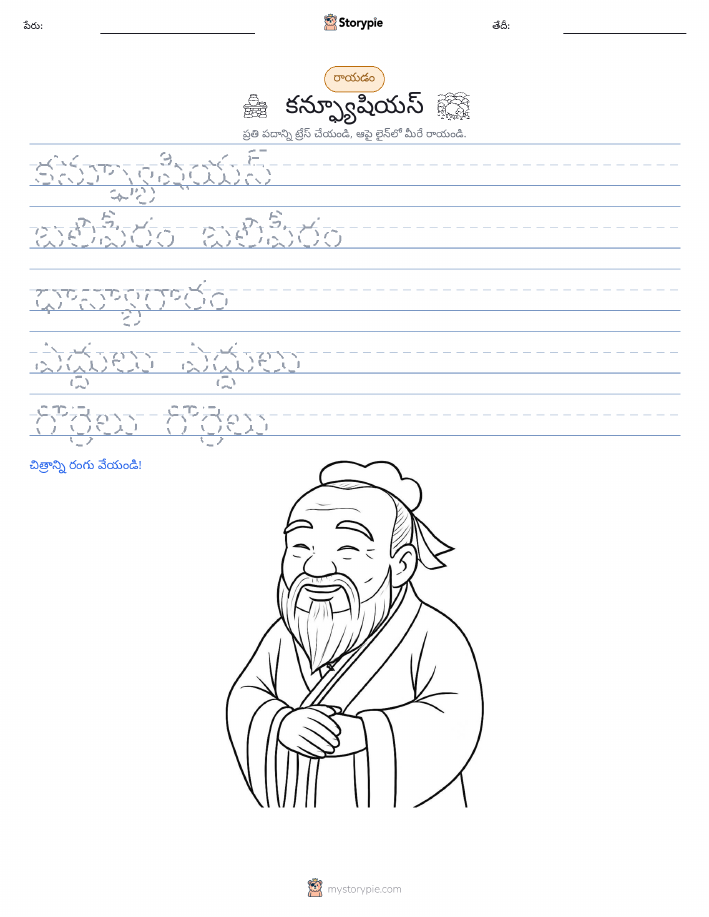 పేరు: Storypie తేదీ:
రాయడం
కన్ఫ్యూషియస్
ప్రతి పదాన్ని ట్రేస్ చేయండి, ఆపై లైన్‌లో మీరే రాయండి.
కన్ఫ్యూషియస్
బలిపీఠం బలిపీఠం
ధాన్యాగారం
ఎద్దులు ఎద్దులు
గొర్రెలు గొర్రెలు
చిత్రాన్ని రంగు వేయండి!
mystorypie.com